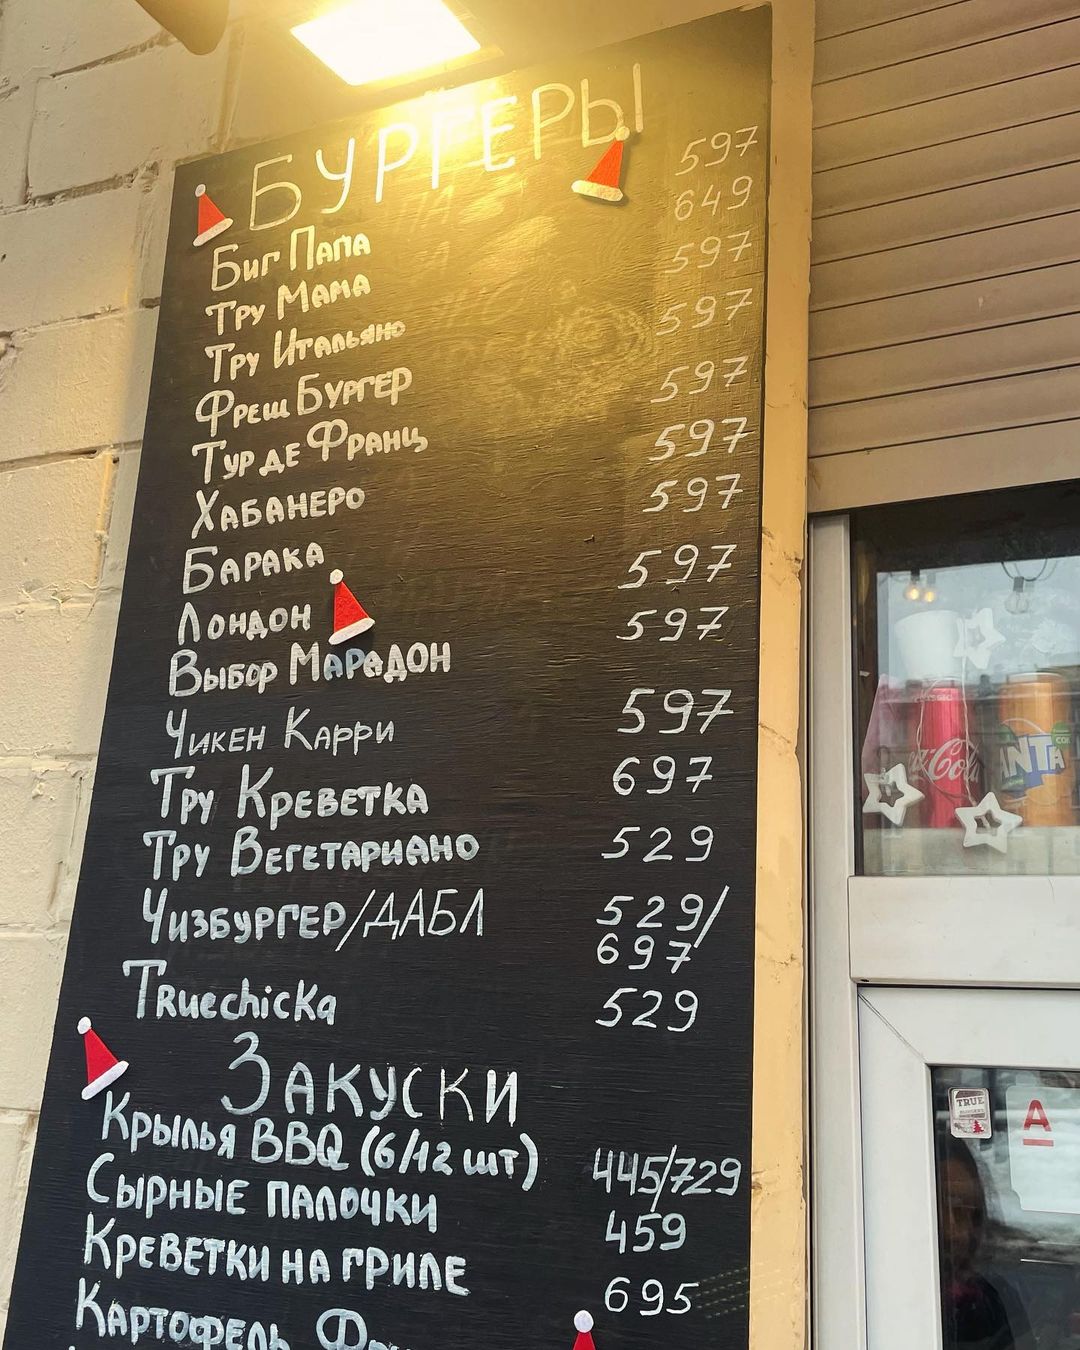 БУРГЕРЫ
Биг Папа 597
Тру Мама 649
Тру Итальяно 597
Фреш Бургер 597
Тур де Франц 597
Хабанеро 597
Барака 597
Лондон 597
Выбор Марадон 597
Чикен Карри 597
Тру Креветка 697
Тру Вегетариано 529
Чизбургер/ДАБЛ 529/
697
Truechicka 529
Закуски
Крылья BBQ (6/12 шт) 445/729
Сырные палочки 459
Креветки на гриле 695
Картофель
Coca-Cola
FANTA
TRUE
A